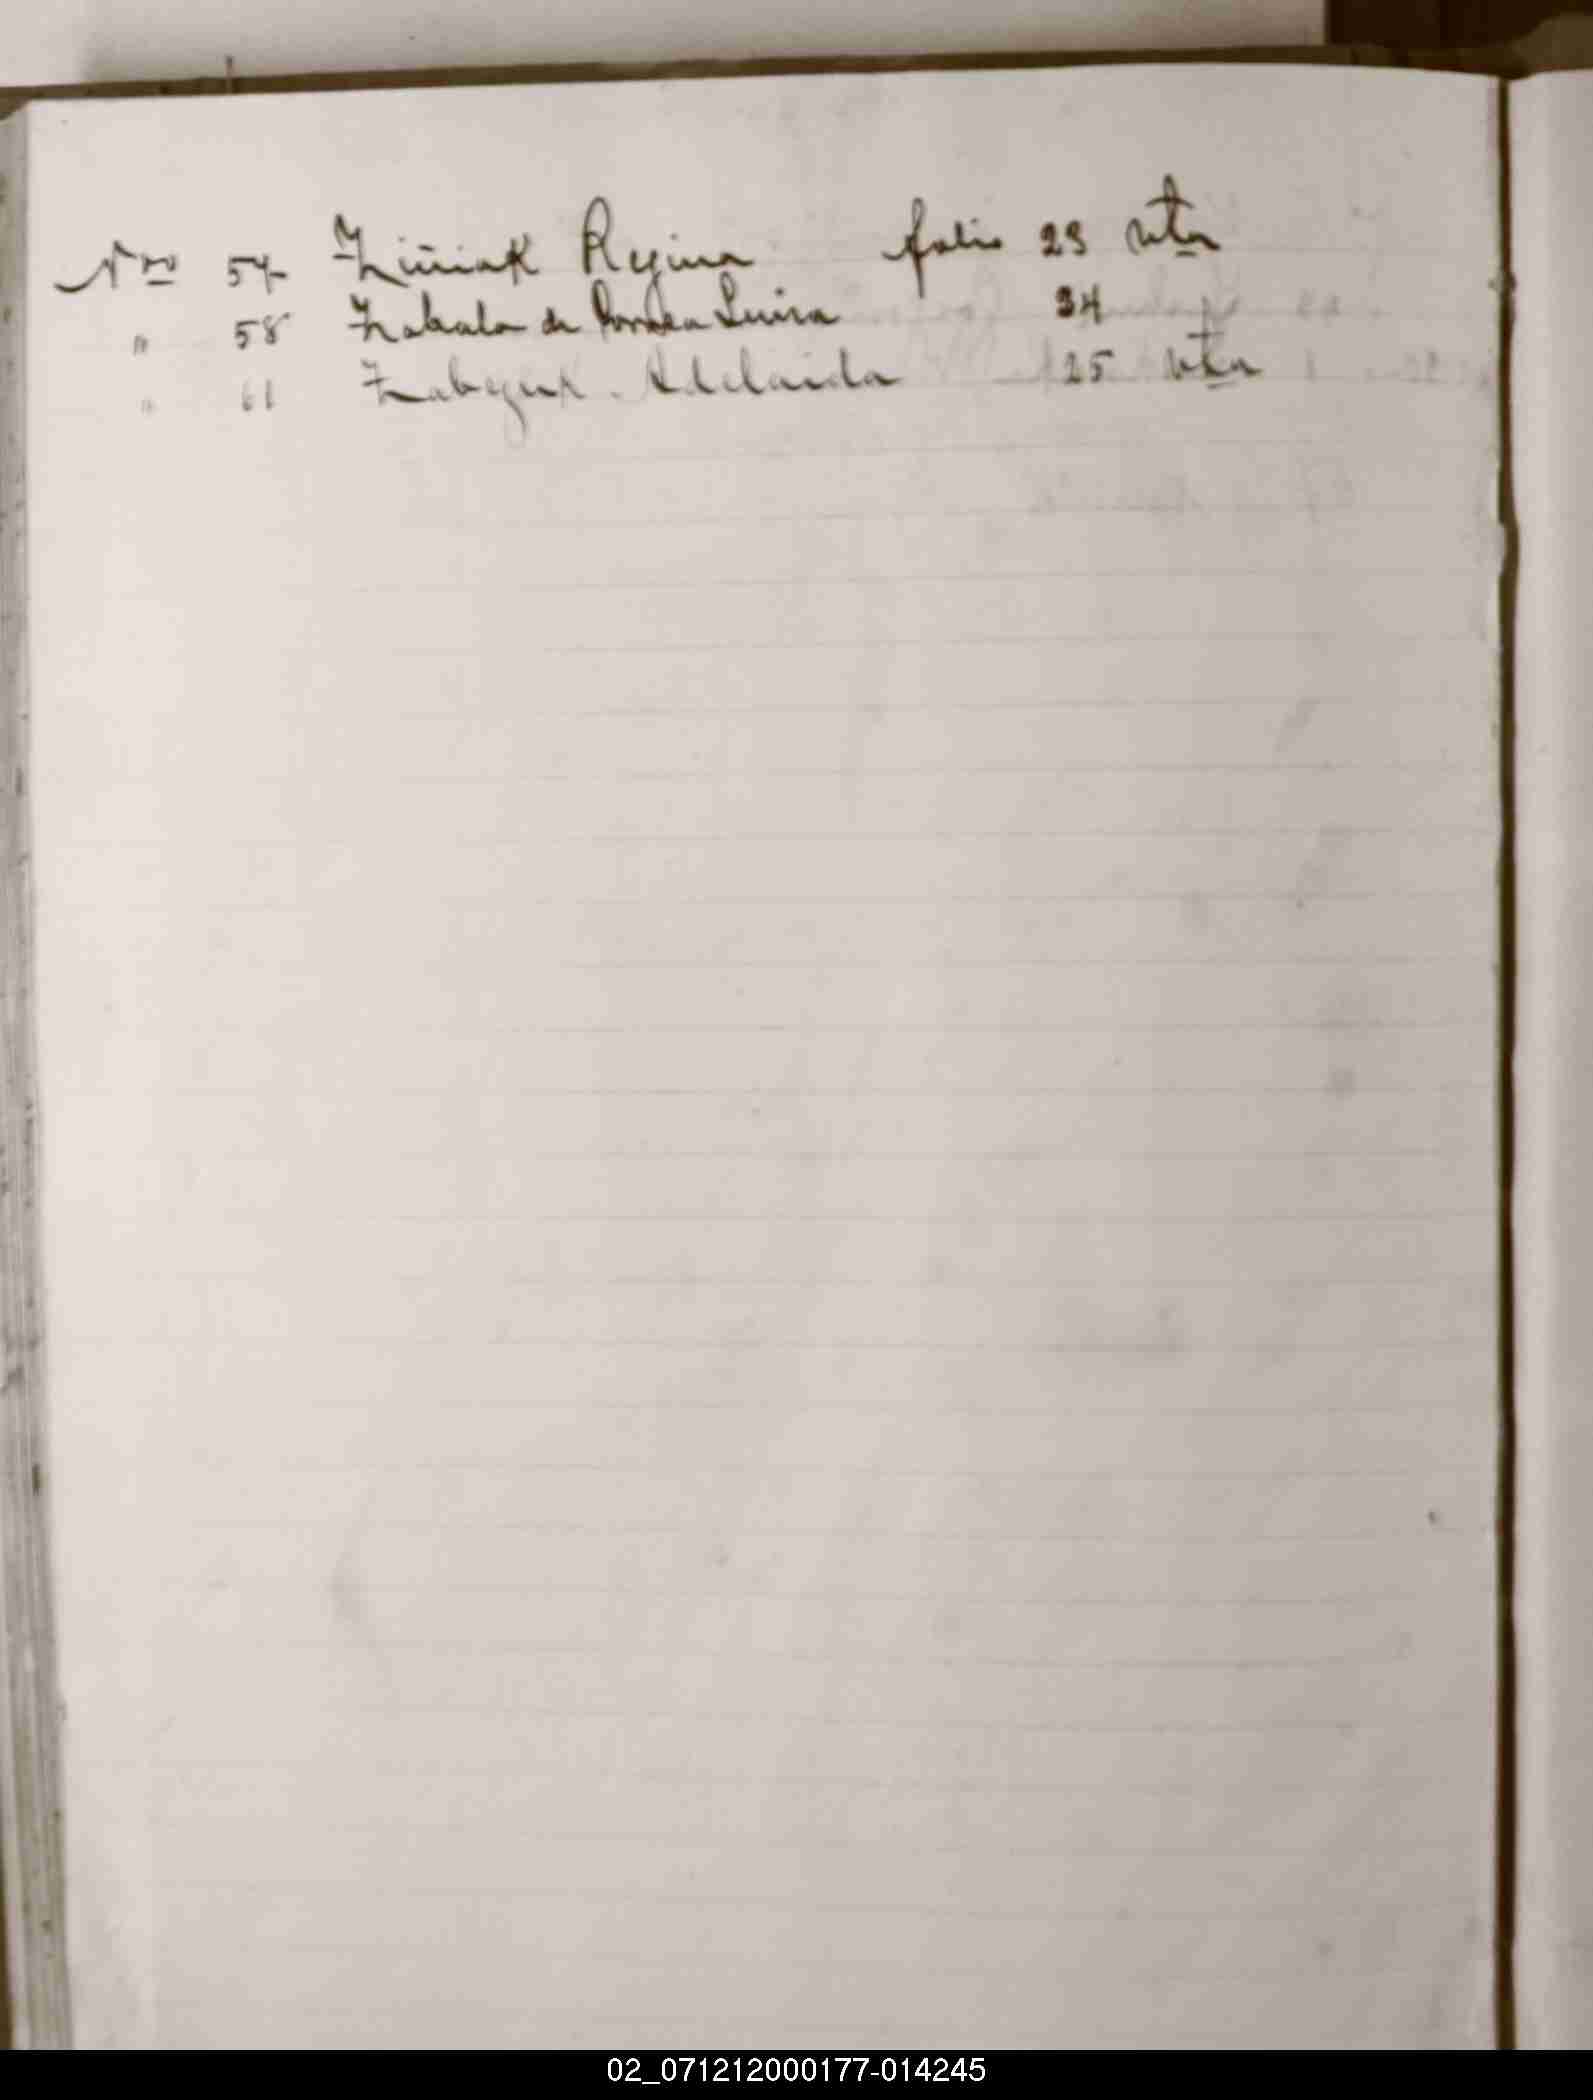 Nro 54 Ziniak Regina folio 23 vta
" 58 Zabala de Luisa 24
" 61 Adelaida 25 vta
02_071212000177-014245